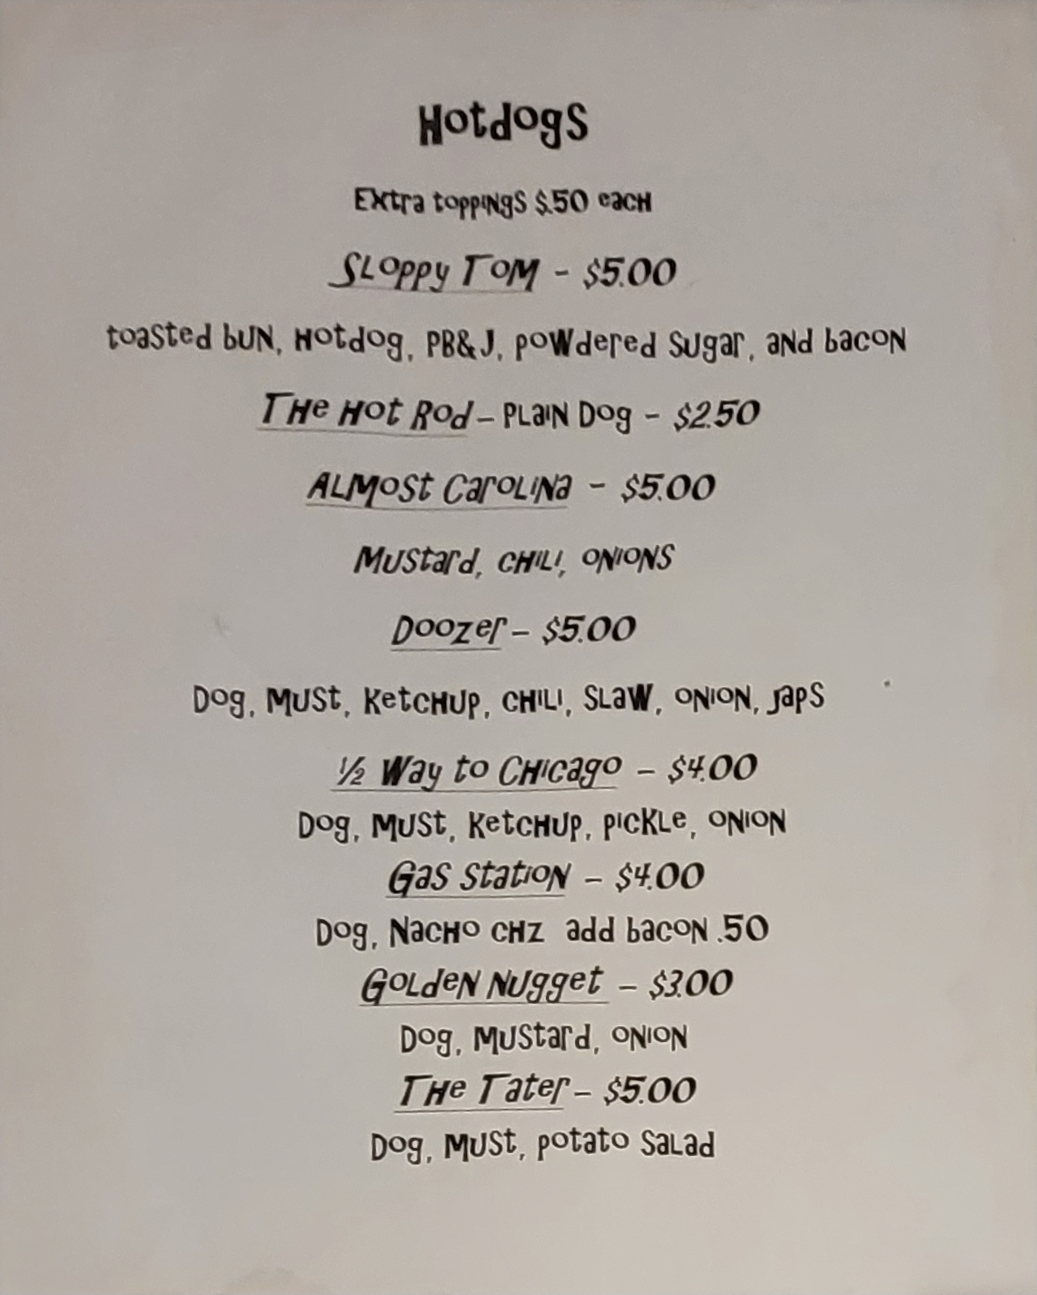 Hotdogs
Extra toppings $.50 each
Sloppy Tom - $5.00
toasted bun, Hotdog, PB&J, powdered sugar, and bacon
The Hot Rod – Plain Dog - $2.50
Almost Carolina - $5.00
Mustard, chili, onions
Doozer – $5.00
Dog, Must, Ketchup, chili, slaw, onion, japs
½ Way to Chicago – $4.00
Dog, Must, Ketchup, pickle, onion
Gas Station – $4.00
Dog, Nacho chz add bacon .50
Golden Nugget – $3.00
Dog, Mustard, onion
The Tater – $5.00
Dog, Must, potato salad